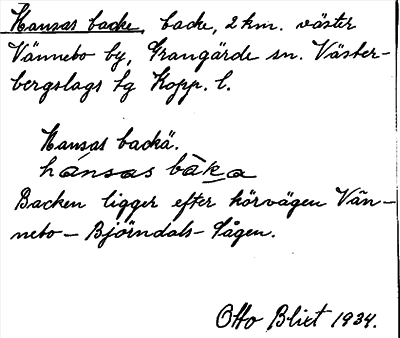 Hansas backe, backe, 2 km. väster
Vännebo by, Grangärde sn. Väster-
bergslags tg Kopp. l.
Hansas backä.
hánsas bàka
Backen ligger efter körvägen Vän-
nebo - Björndals- Sågen.
Otto Blixt 1934.